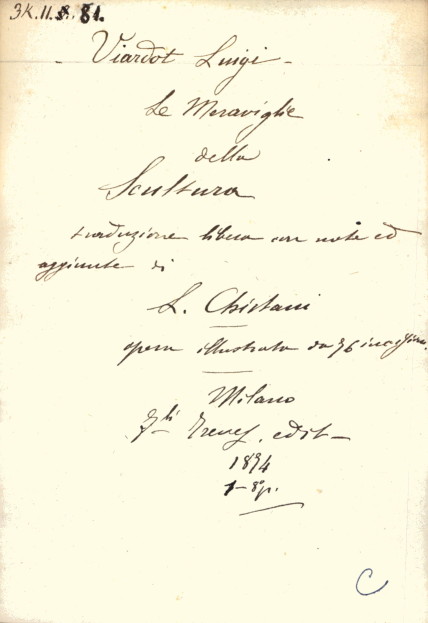 3K.II. 81.
Viardot Luigi -
Le Meraviglie
della
Scultura
traduzione libera con note ed
aggiunte di
L. Chirtani
opera illustrata da 76 incisioni
Milano
F.lli Treves, edit -
1874
1 - 8° p.
C